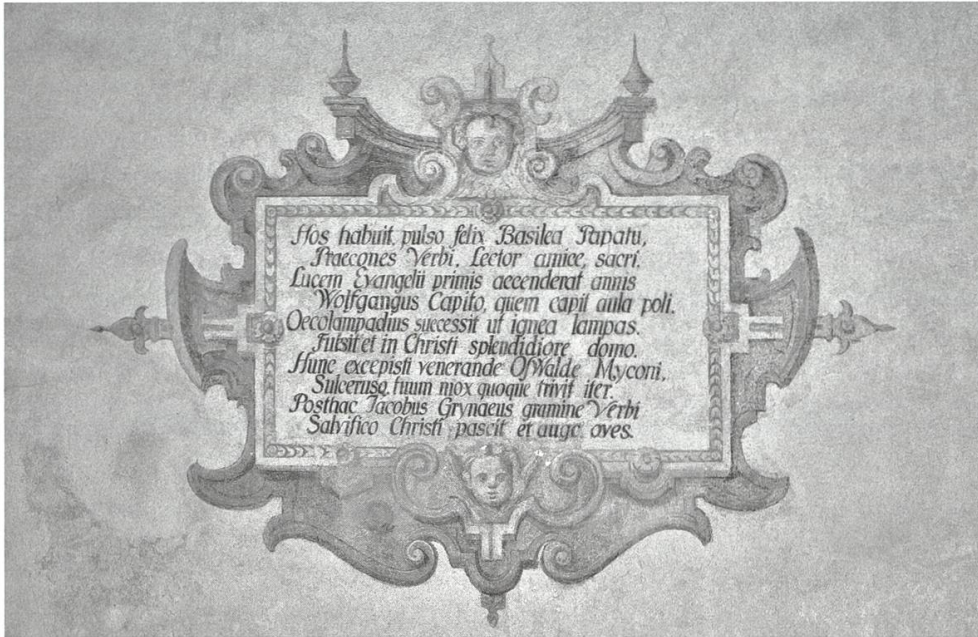 Hos habuit, pulso felix Basilea Papatu,
Praecones Verbi, Lector amice, sacri.
Lucem Evangelii primis accenderat annis
Wolfgangus Capito, quem capit aula poli.
Oecolampadius successit ut ignea lampas.
Fulsit et in Christi splendidiore domo.
Hunc excepisti venerande Oswalde Myconi,
Sulcerusq. tuum mox quoque trivit iter.
Posthac Jacobus Grynaeus gramine Verbi
Salvifico Christi pascit et augc oves.